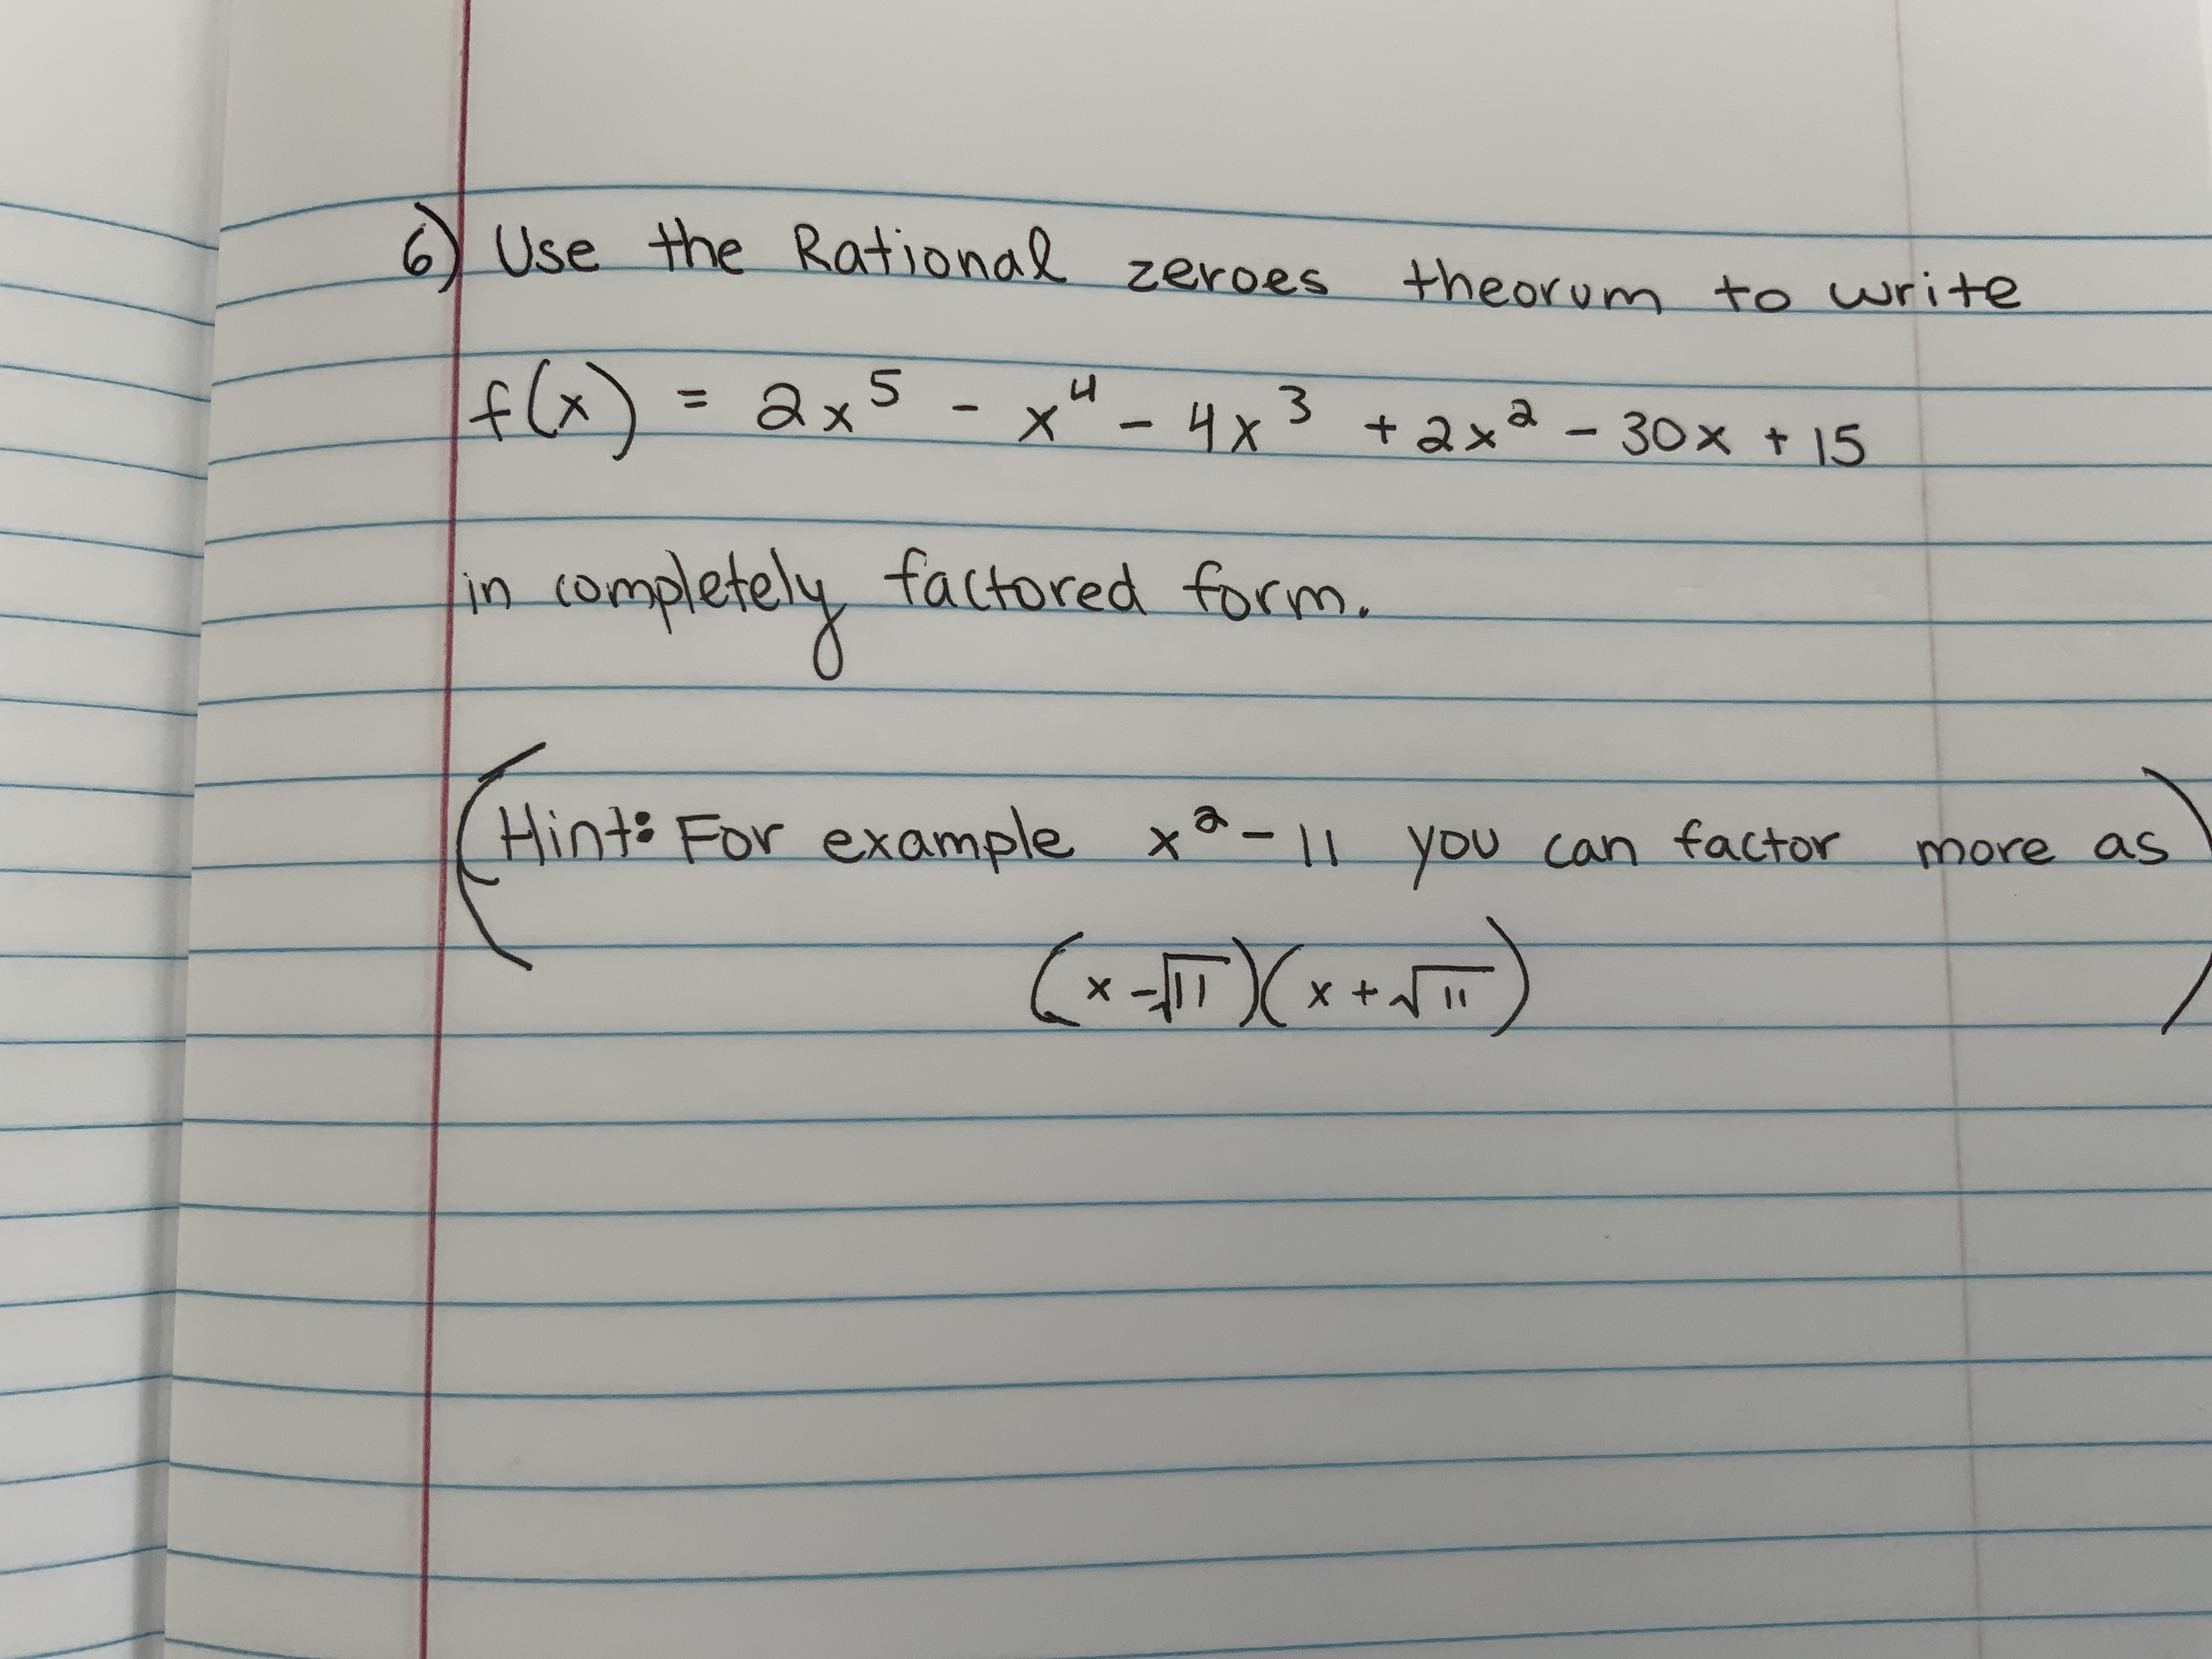 6) Use the Rational zeroes theorum to write
f(x) = 2x⁵ - x⁴ - 4x³ + 2x² - 30x + 15
in completely factored form.
(Hint: For example x² - 11 you can factor more as
(x - √11)(x + √11))